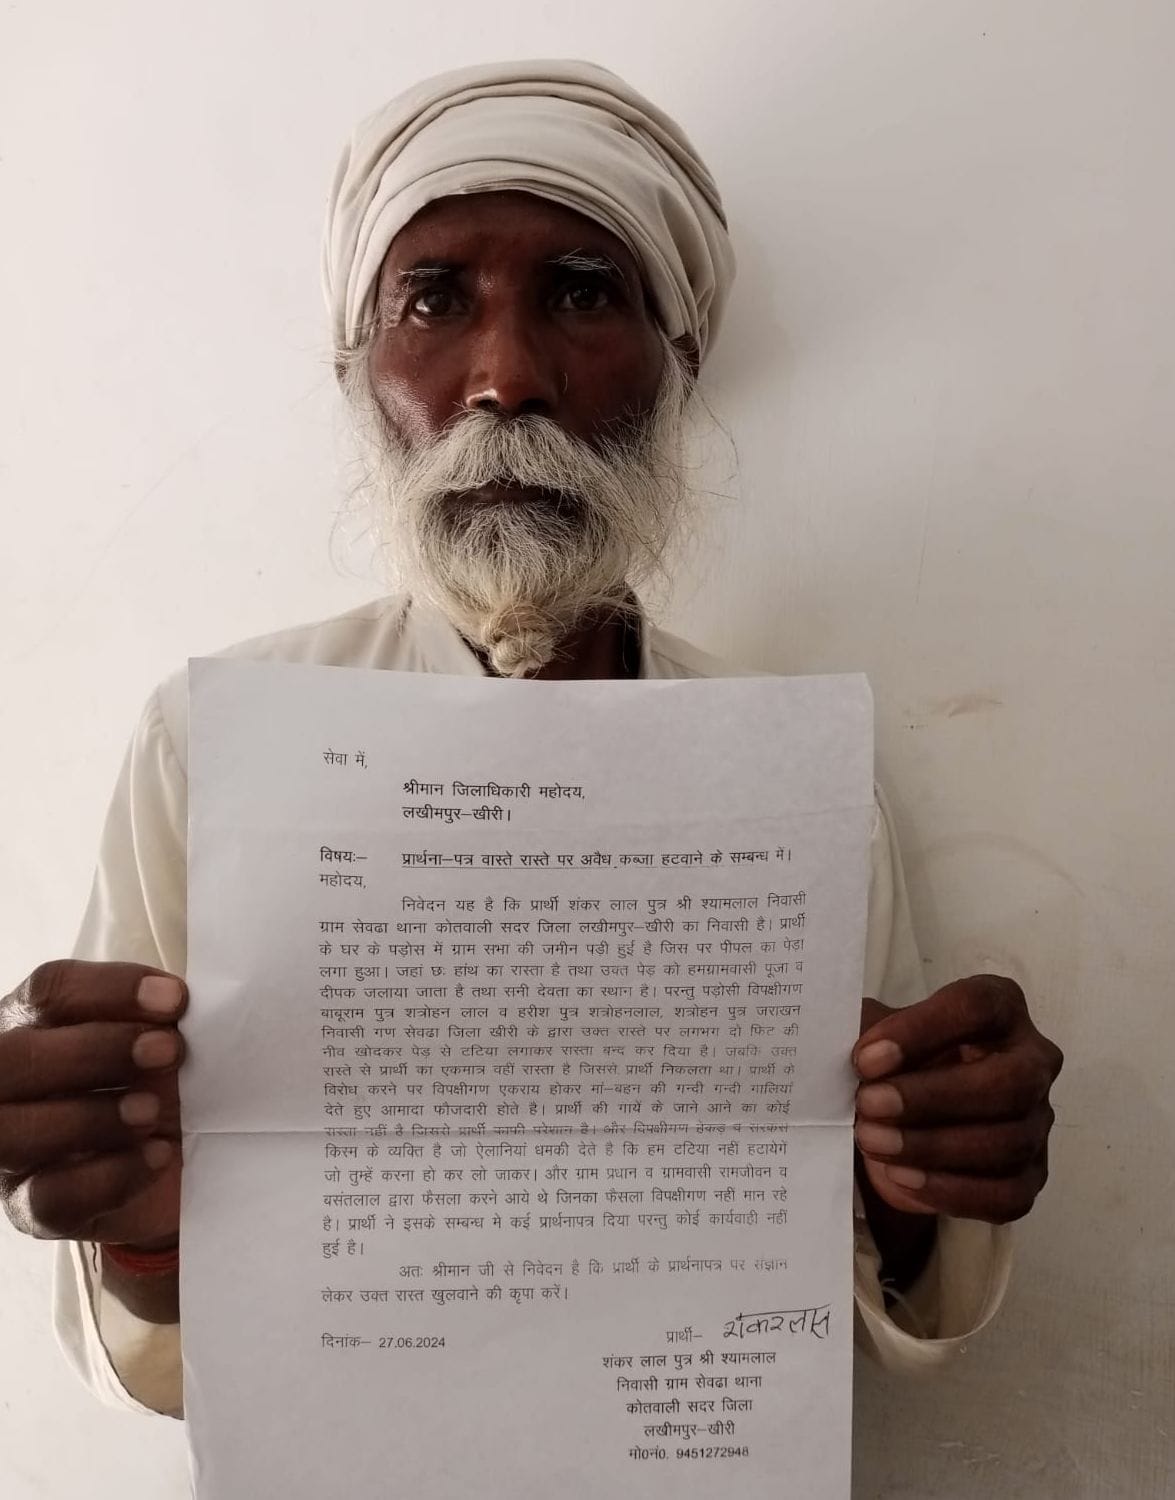 सेवा में,
श्रीमान जिलाधिकारी महोदय,
लखीमपुर–खीरी।
विषयः– प्रार्थना–पत्र वास्ते रास्ते पर अवैध कब्जा हटवाने के सम्बन्ध में।
महोदय,
निवेदन यह है कि प्रार्थी शंकर लाल पुत्र श्री श्यामलाल निवासी
ग्राम सेवढा थाना कोतवाली सदर जिला लखीमपुर–खीरी का निवासी है। प्रार्थी
के घर के पड़ोस में ग्राम सभा की जमीन पड़ी हुई है जिस पर पीपल का पेड़।
लगा हुआ। जहां छः हांथ का रास्ता है तथा उक्त पेड़ को हमग्रामवासी पूजा व
दीपक जलाया जाता है तथा सनी देवता का स्थान है। परन्तु पड़ोसी विपक्षीगण
बाबूराम पुत्र शत्रोहन लाल व हरीश पुत्र शत्रोहनलाल, शत्रोहन पुत्र जराखन
निवासी गण सेवढा जिला खीरी के द्वारा उक्त रास्ते पर लगभग दो फिट की
नीव खोदकर पेड़ से टटिया लगाकर रास्ता बन्द कर दिया है। जबकि उक्त
रास्ते से प्रार्थी का एकमात्र वहीं रास्ता है जिससे प्रार्थी निकलता था। प्रार्थी के
विरोध करने पर विपक्षीगण एकराय होकर मां–बहन की गन्दी गन्दी गालियां
देते हुए आमादा फौजदारी होते है। प्रार्थी की गायें के जाने आने का कोई
रास्ता नहीं है जिससे प्रार्थी काफी परेशान है। और विपक्षीगण हेकड़ व सरकस
किस्म के व्यक्ति है जो ऐलानियां धमकी देते है कि हम टटिया नहीं हटायेगें
जो तुम्हें करना हो कर लो जाकर। और ग्राम प्रधान व ग्रामवासी रामजीवन व
बसंतलाल द्वारा फैसला करने आये थे जिनका फैसला विपक्षीगण नहीं मान रहे
है। प्रार्थी ने इसके सम्बन्ध मे कई प्रार्थनापत्र दिया परन्तु कोई कार्यवाही नहीं
हुई है।
अतः श्रीमान जी से निवेदन है कि प्रार्थी के प्रार्थनापत्र पर संज्ञान
लेकर उक्त रास्त खुलवाने की कृपा करें।
दिनांक– 27.06.2024 प्रार्थी– शंकरलाल
शंकर लाल पुत्र श्री श्यामलाल
निवासी ग्राम सेवढा थाना
कोतवाली सदर जिला
लखीमपुर–खीरी
मो0नं0. 9451272948